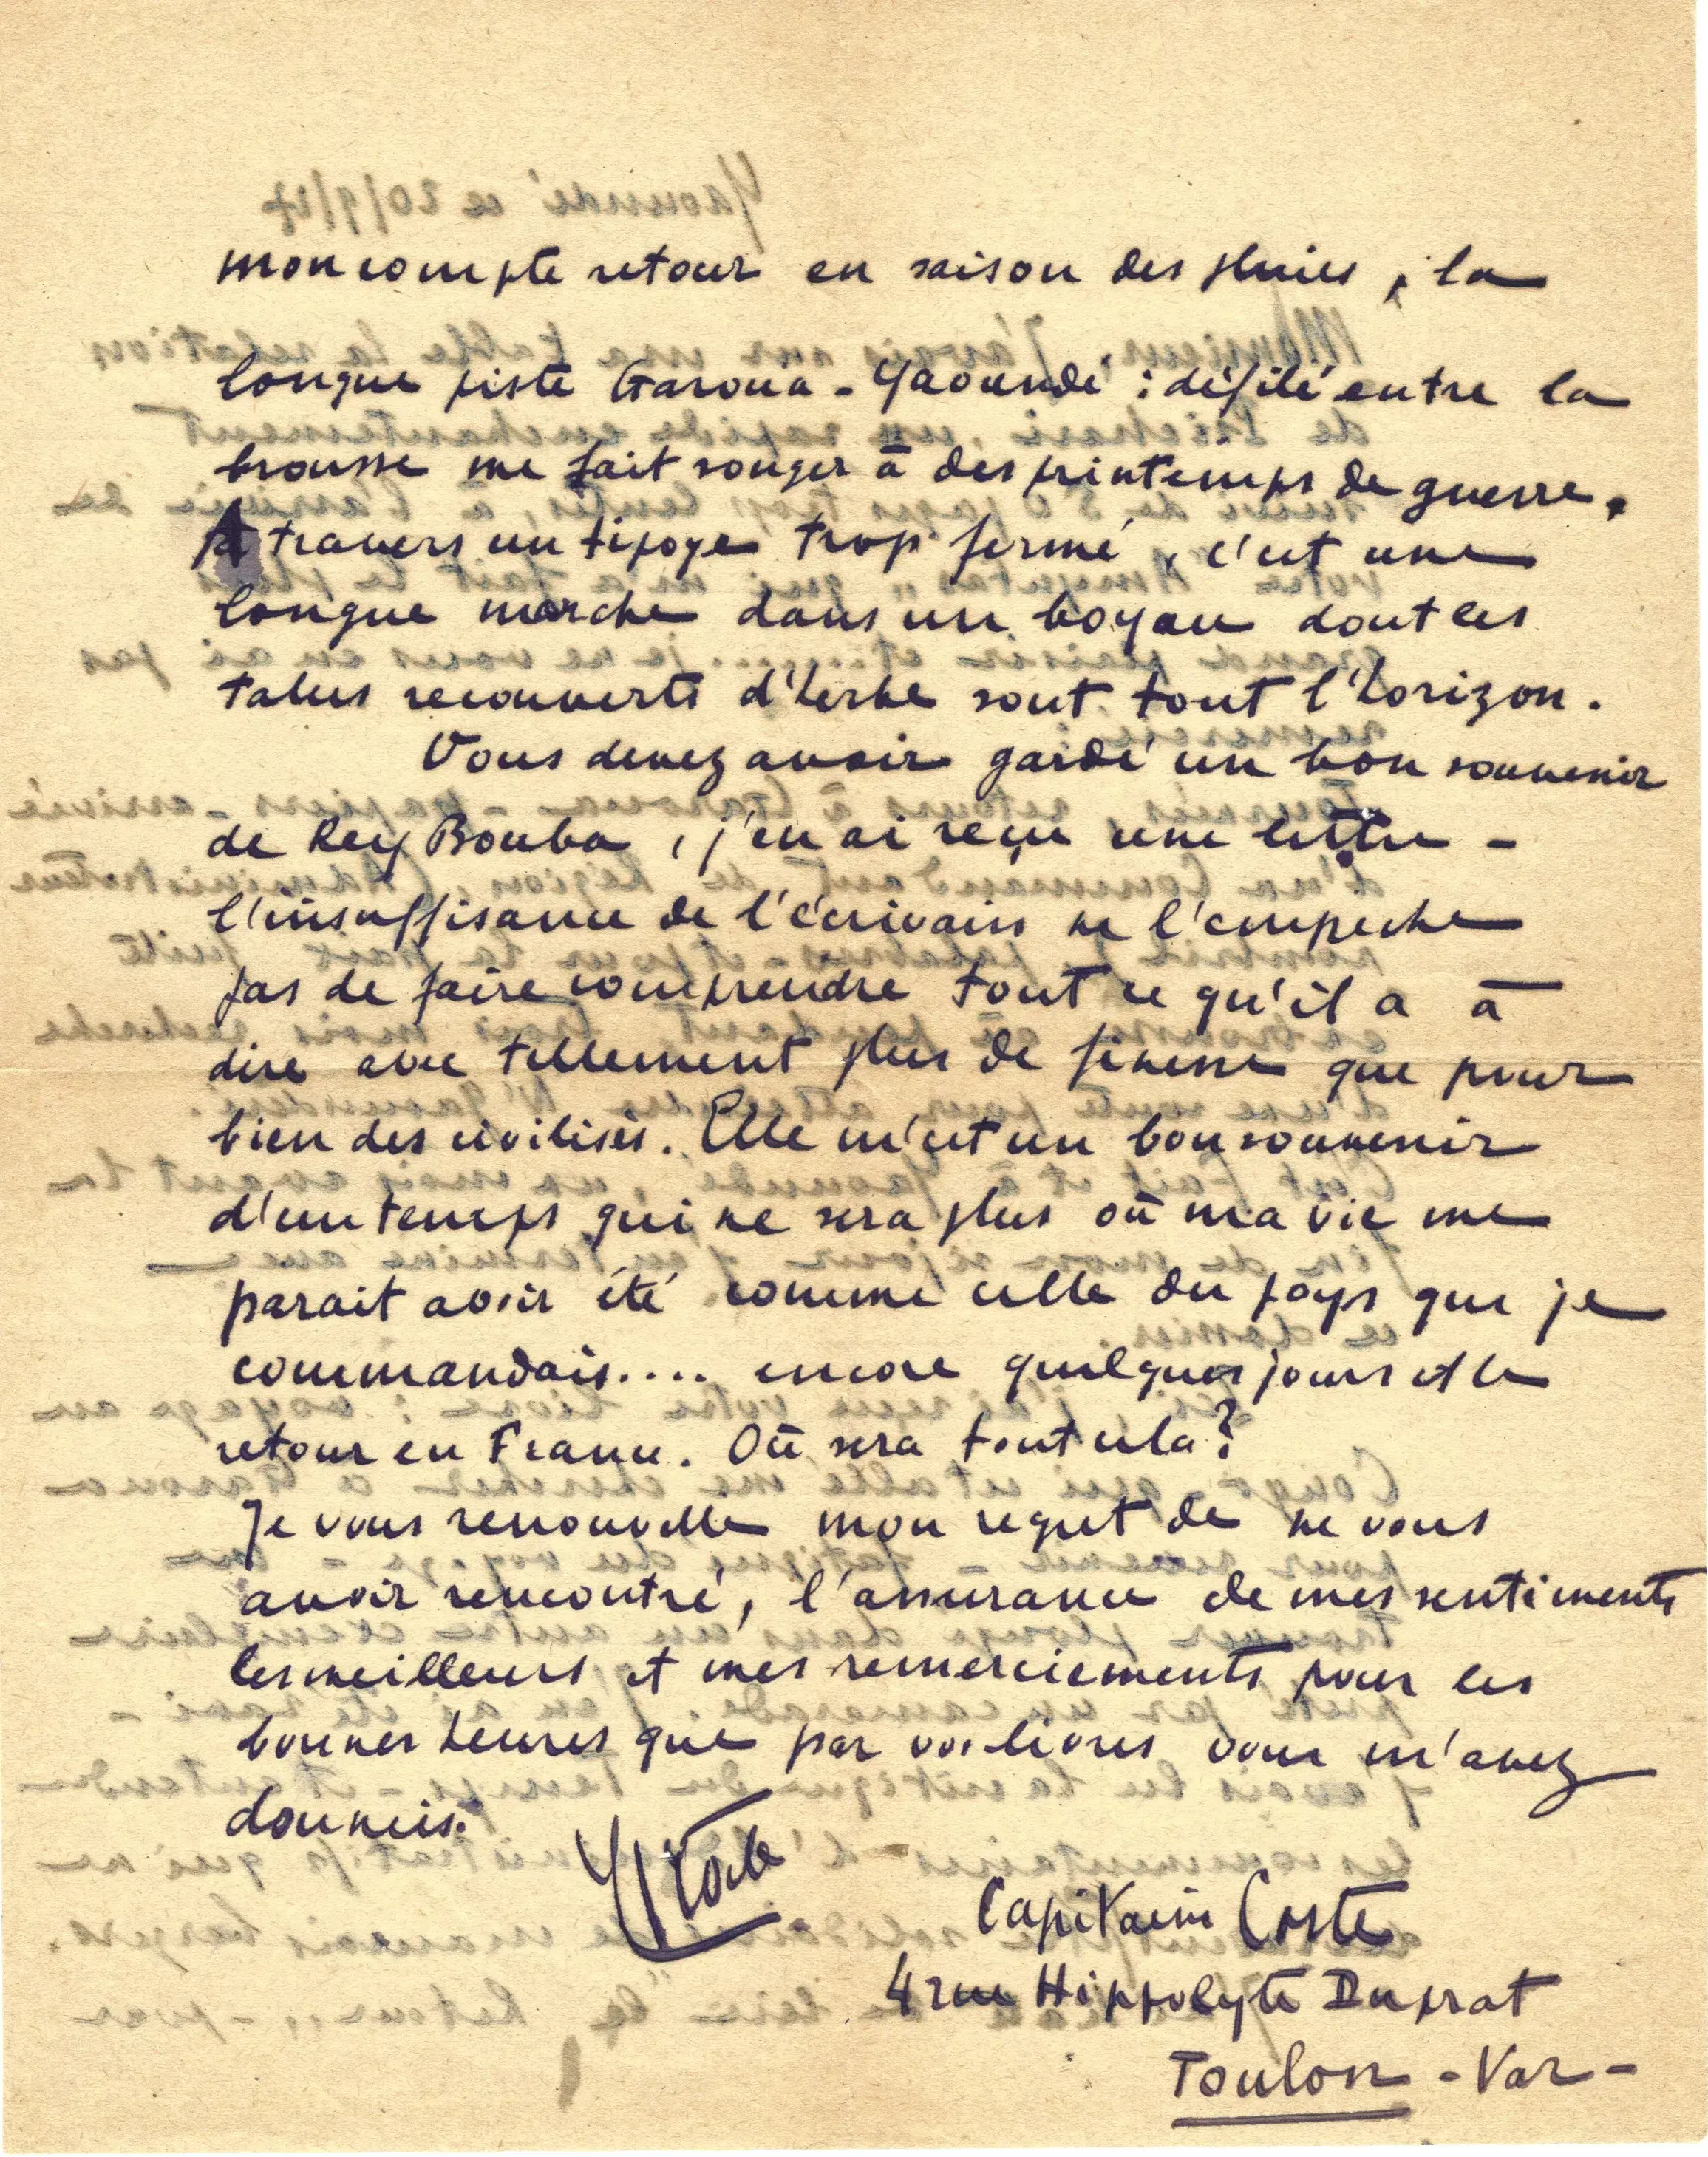 mon compte retour en saison des pluies, la
longue piste Garoua - Yaoundé : défilé entre la
brousse me fait songer à des printemps de guerre.
A travers un tipoye trop fermé, c'est une
longue marche dans un boyau dont les
talus recouverts d'herbe sont tout l'horizon.
Vous devez avoir gardé un bon souvenir
de Rey Bouba, j'en ai reçu une lettre -
l'insuffisance de l'écrivain ne l'empeche
pas de faire comprendre tout ce qu'il a à
dire avec tellement plus de finesse que pour
bien des civilisés. Elle m'est un bon souvenir
d'un temps qui ne sera plus où ma vie me
parait avoir été comme celle du pays que je
commandais.... encore quelques jours et le
retour en France. Où sera tout cela ?
Je vous renouvelle mon regret de ne vous
avoir rencontré, l'assurance de mes sentiments
les meilleurs et mes remerciements pour les
bonnes heures que par vos livres vous m'avez
données.
Coste
Capitaine Coste
4 rue Hippolyte Duprat
Toulon - Var -